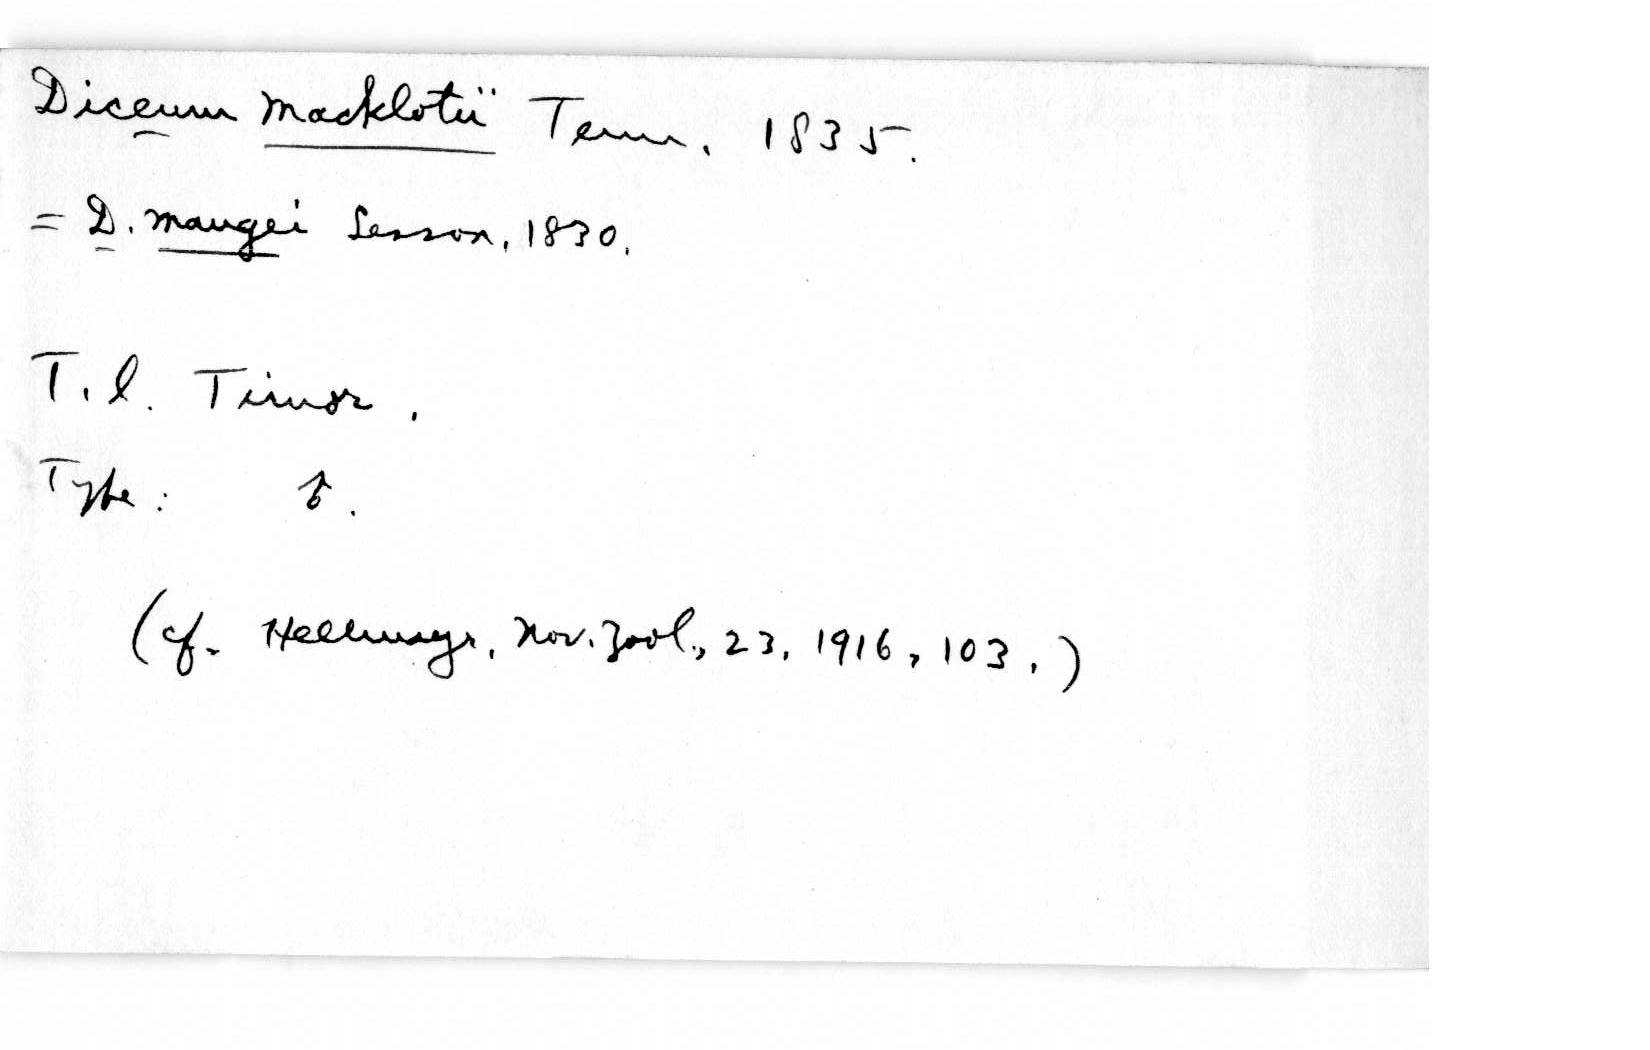 Diceum Macklotii Tem. 1835.
= D. maugei Lesson, 1830.
T.l. Timor.
Type: ♂.
(cf. Hellmayr, Nov. Zool., 23, 1916, 103.)